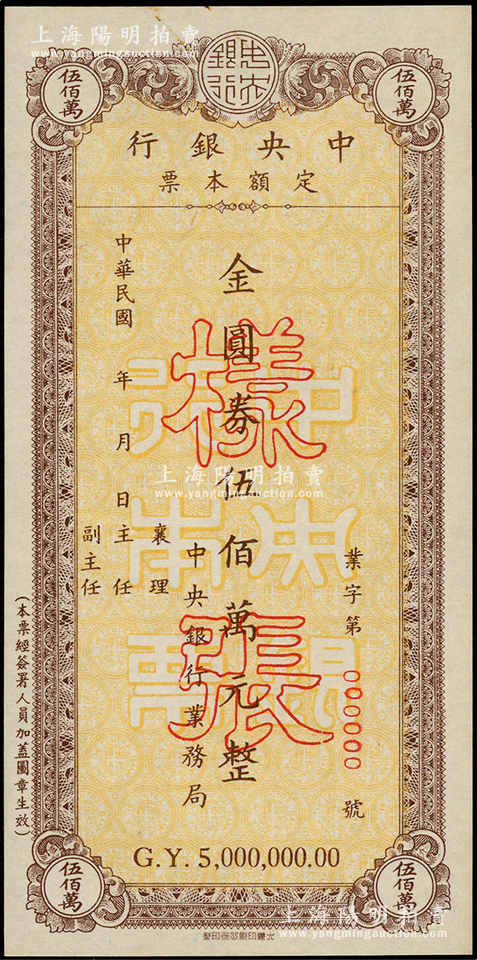 上海陽明拍賣
www.yangmingauction.com
中央銀行
伍佰萬
伍佰萬
中央銀行
定額本票
業字第0000000號
金圓券伍佰萬元整
中央銀行業務局
襄理
主任
副主任
中華民國 年 月 日
樣張
中央銀行本票
上海陽明拍賣
www.yangmingauction.com
(本票經簽署人員加盖圖章生效)
G.Y. 5,000,000.00
伍佰萬
伍佰萬
上海陽明拍賣
www.yangmingauction.com